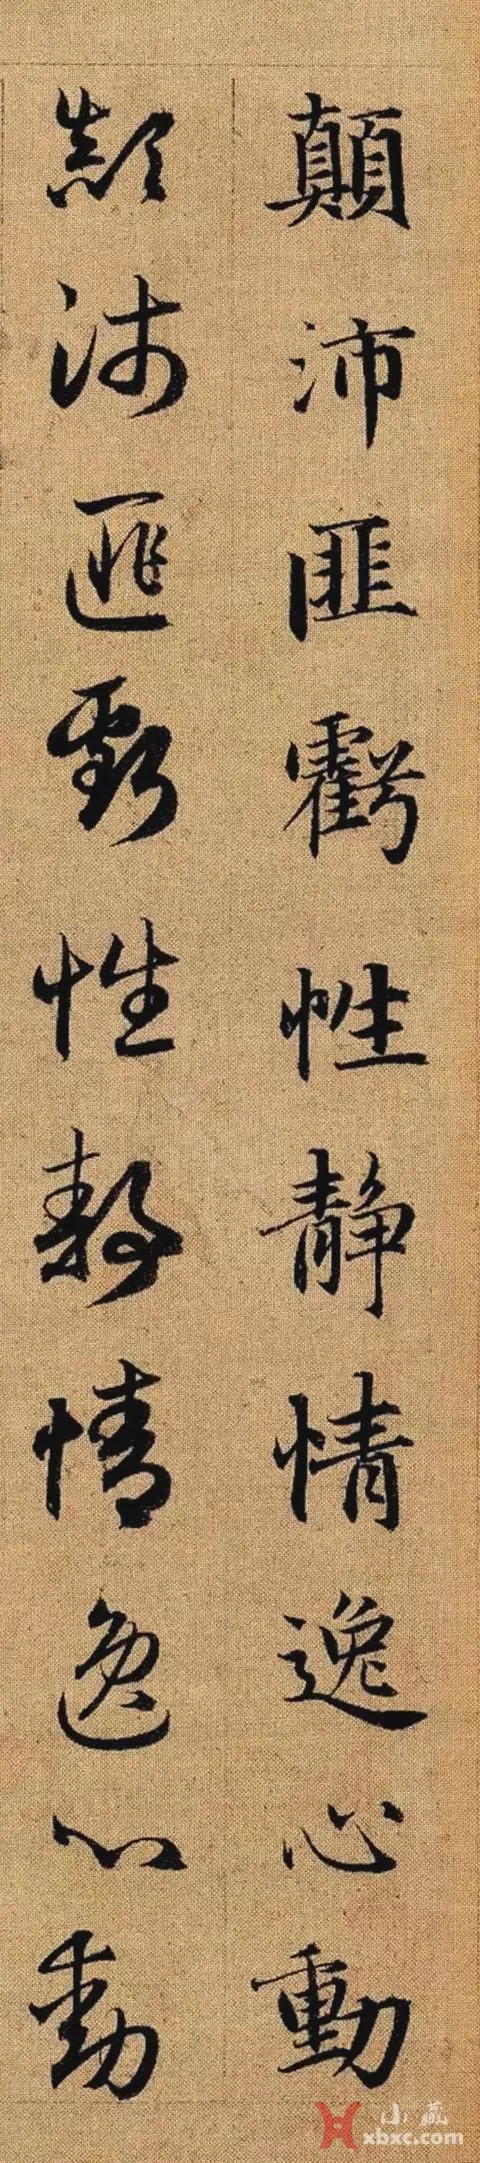 顛沛匪虧性静情逸心動
顛沛匪虧性静情逸心動
小藏
xbxc.com